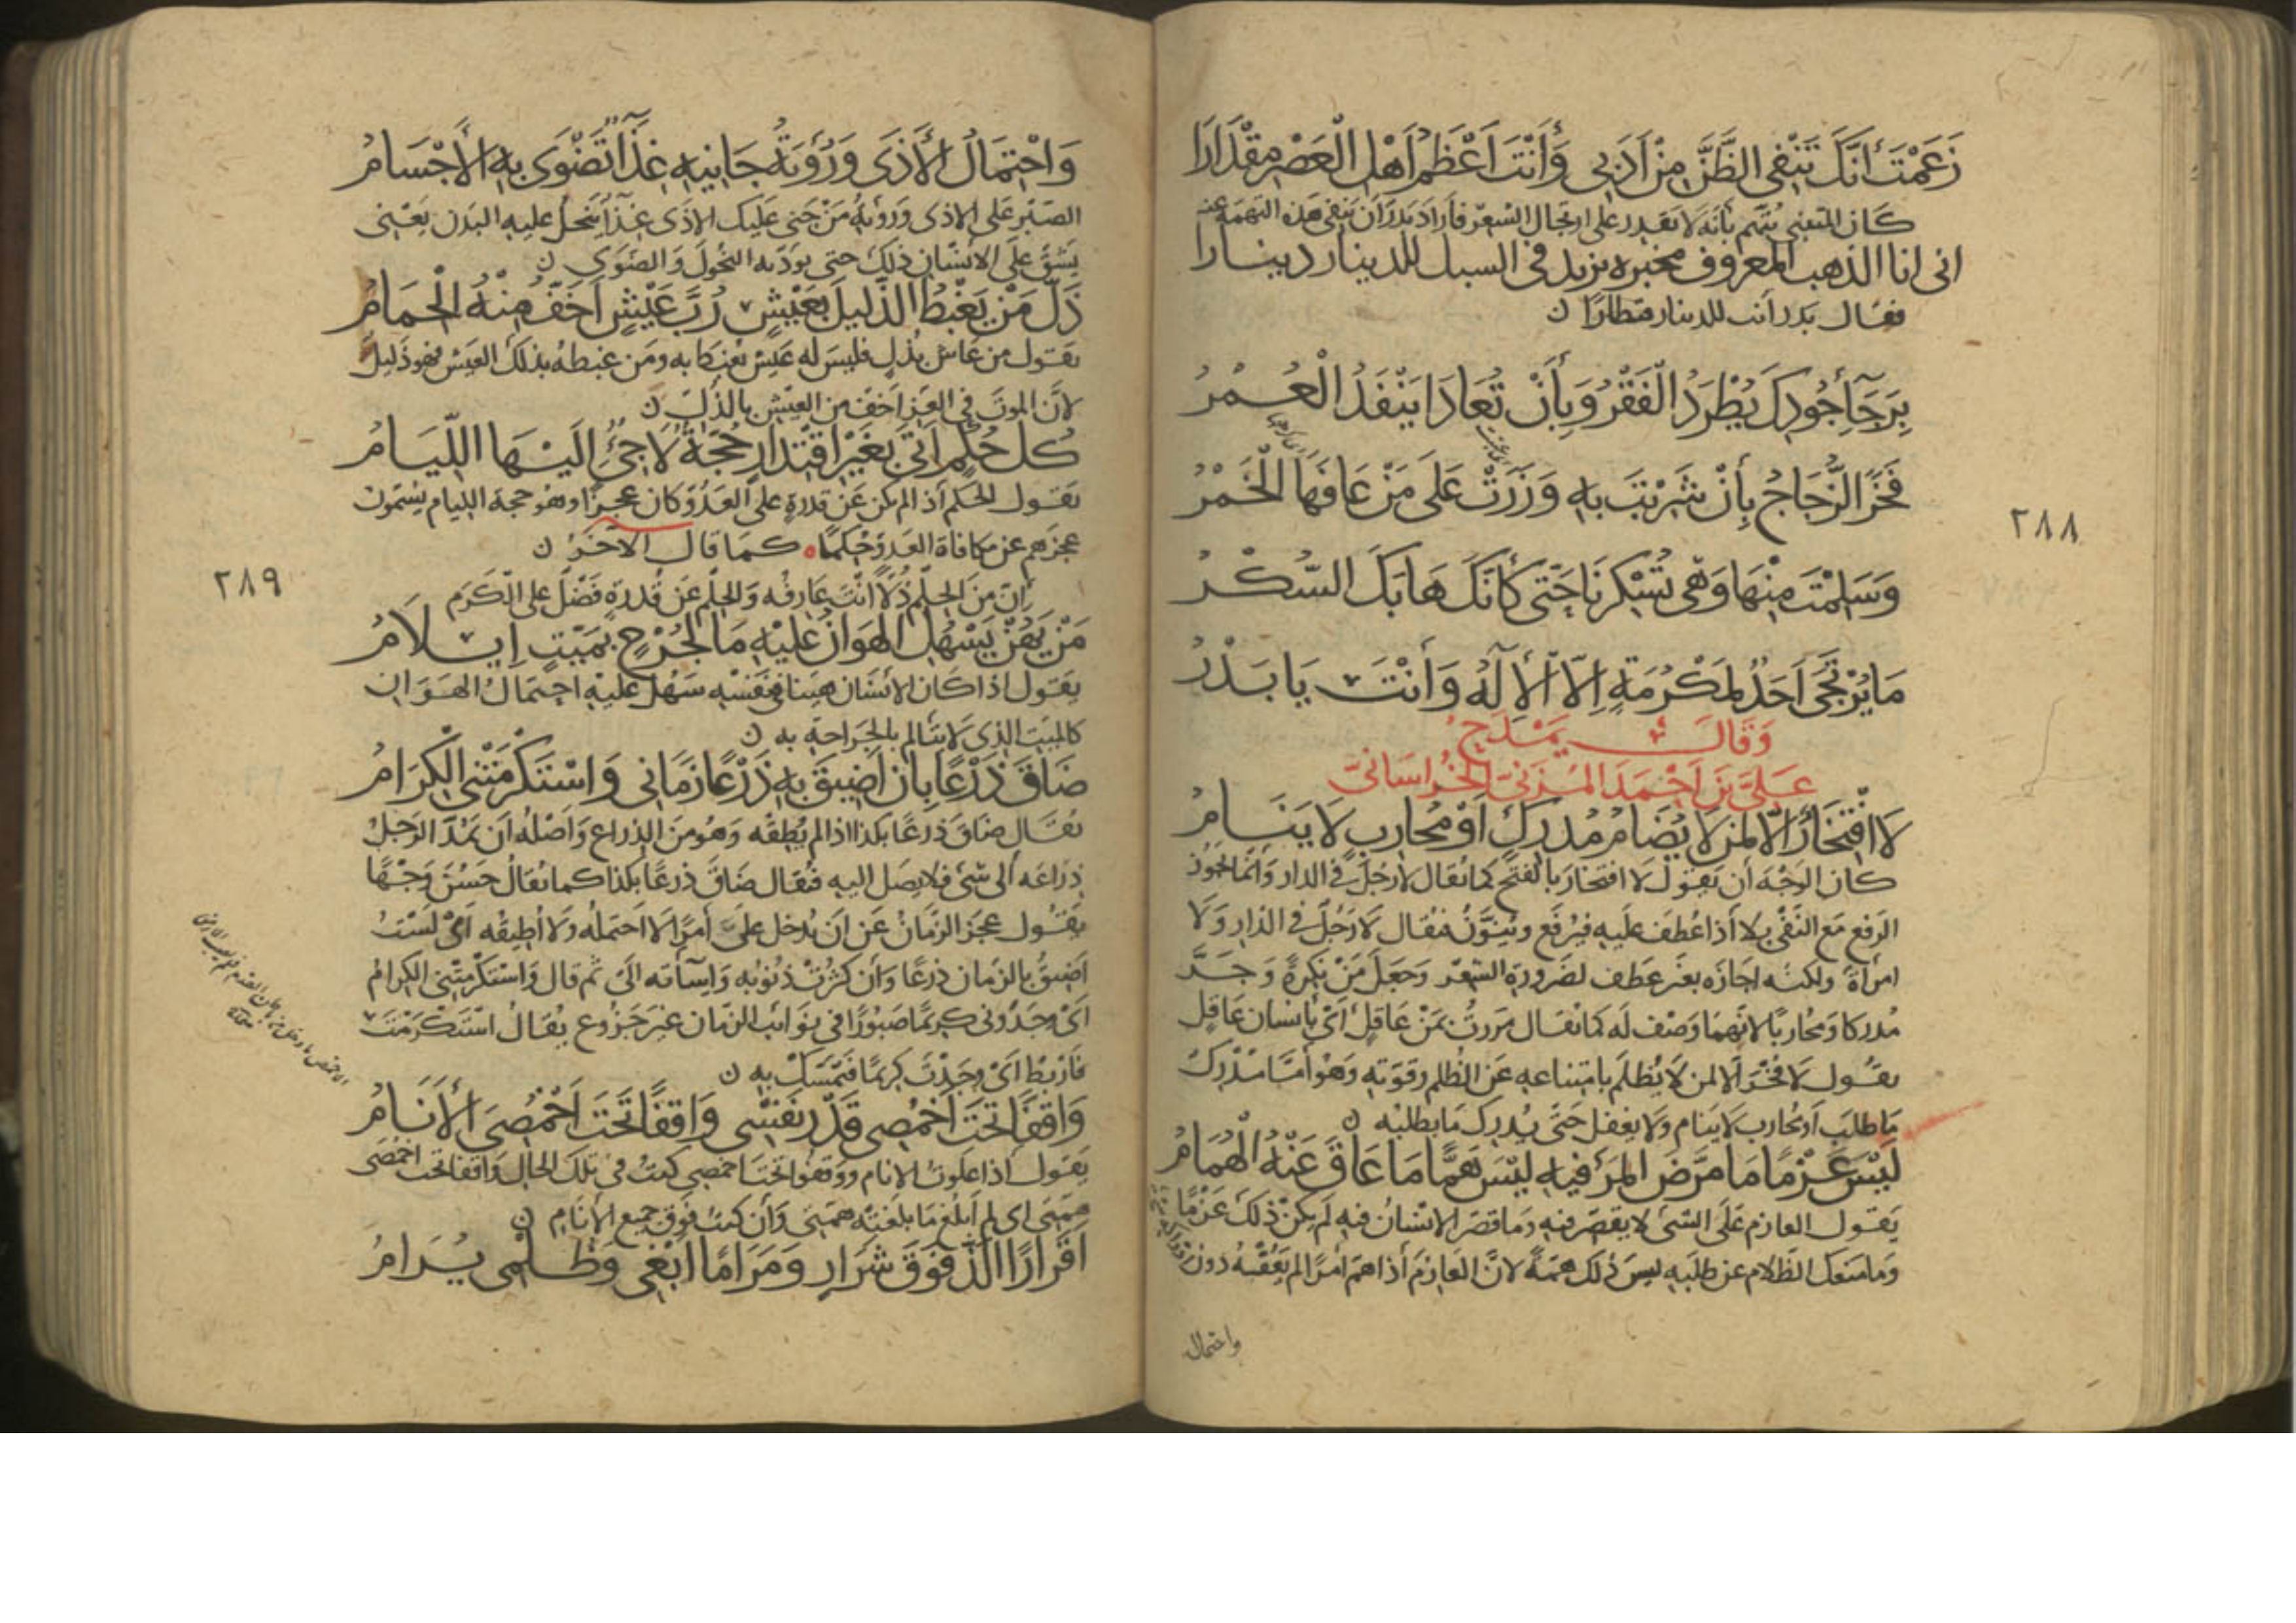 زَعَمْتَ أَنَّكَ تَنْفِي الظَّنَّ مِنْ أَدَبِي وَأَنْتَ أَعْظَمُ أَهْلِ الْعَصْرِ مِقْدَارَا
كان المتنبي يتهم بأنه لا يقدر على ارتجال الشعر فأراد بدر أن ينفي هذه التهمة عنه
اني انا الذهب المعروف مخبره يزيد في السبك للدينار دينارا
فقال بدر أنت للدينار قنطارا ن
بِرَجَآءِ جُودِكَ يُطْرَدُ الْفَقْرُ وَبِأَنْ تُعَادَا يَنْفَدُ الْعُمْرُ
فَخَرَ الزُّجَاجُ بِأَنْ شَرِبْتَ بِهِ وَزَرَتْ عَلَى مَنْ عَافَهَا الْخَمْرُ
وَسَلِمْتَ مِنْهَا وَهْيَ تُسْكِرُنَا حَتَّى كَأَنَّكَ هَابَكَ السُّكْرُ
مَا يُرْتَجَى أَحَدٌ لِمَكْرُمَةٍ اِلّا الْاِلَهُ وَأَنْتَ يَا بَدْرُ
وَقَالَ يَمْدَحُ
عَلِيَّ بْنَ اَحْمَدَ المُرِّيّ الخُراسَانيّ
لَا افْتِخَارٌ اِلّا لِمَنْ لَا يُضَامُ مُدْرِكٍ اَوْ مُحَارِبٍ لَا يَنَامُ
كان الوجه أن يقول لا افتخار بالفتح كما يقال لا رجل في الدار وانما يجوز
الرفع مع النفي بلا أذا عطف عليه فيرفع وينون فيقال لا رجل في الدار ولا
امرأة ولكنه اجازه بغير عطف لضرورة الشعر وجعل من نكرة وجر
مدركا ومحاربا لانهما وصف له كما يقال مررت بمن عاقل أي بانسان عاقل
يقول لا فخر الا لمن لا يظلم بامتناعه عن الظلم وقوته وهو أما مدرك
ما طلب أو محارب لا ينام ولا يغفل حتى يدرك ما يطلبه ن
لَيْسَ عَزْمًا مَا مَرَّضَ المَرْءُ فيهِ لَيْسَ هَمًّا مَا عَاقَ عَنْهُ الْهُمَامُ
يقول العازم على الشئ لا يقصر فيه وما قصر الانسان فيه لم يكن ذلك عزما
وما منعك الظلام عن طلبه ليس ذلك همة لان العازم أذا هم أمرا لم يعقه دون
واحتمال
٢٨٨
وَاحْتِمَالُ الأَذَى وَرُؤْيَةُ جَانِيهِ غِذَآءٌ تَضْوَى بِهِ الأَجْسَامُ
الصبر على الاذى ورؤية من جنى عليك الاذى غذآء ينحل عليه البدن يعني
يشق على الانسان ذلك حتى يؤديه النحول والضوى ن
ذَلَّ مَنْ يَغْبِطُ الذَّلِيلَ بِعَيْشٍ رُبَّ عَيْشٍ اَخَفُّ مِنْهُ الْحِمَامُ
يقول من عاش بذل فليس له عيش يغبط به ومن غبطه بذلك العيش فهو ذليل
لان الموت في العز اخف من العيش بالذل ن
كُلُّ حُكْمٍ اَتَى بِغَيْرِ اقْتِدَارٍ حُجَّةٌ لَاجِئٌ اِلَيْهَا اللِّيَامُ
يقول الحكم أذا لم يكن عن قدرة على العدو كان عجزا وهو حجة الليام يسمون
عجزهم عن مكافاة العدو حكما كما قال الآخر ن
إن من الحلم ذلا انت عارفه والحلم عن قدرة فضل على الكرم
مَنْ يَهُنْ يَسْهُلِ الهَوَانُ عَلَيْهِ مَا لِجُرْحٍ بِمَيِّتٍ اِيلَامُ
يقول اذا كان الانسان هينا في نفسه سهل عليه احتمال الهوان
كالميت الذي لا يتألم بالجراحة به ن
ضَاقَ ذَرْعًا بِأَنْ أَضِيقَ بِهِ ذَرْعًا زَمَانِي وَاسْتَكْرَمَتْنِي الْكِرَامُ
يقال ضاق ذرعا بكذا اذا لم يطقه وهو من الذراع واصله ان يمد الرجل
ذراعه الى شئ فلا يصل اليه فيقال ضاق ذرعا بكذا كما يقال حسن وجها
يقول عجز الزمان عن ان يدخل علي أمرا لا احتمله ولا أطيقه أي لست
اضيق بالزمان ذرعا وأن كثرت ذنوبه وإسآته الي ثم قال واستكرمتني الكرام
اي وجدوني كريما صبورا في نوائب الزمان غير جزوع يقال استكرمت
فاربط اي وجدت كريما فتمسك به ن
وَاقِفًا تَحْتَ أَخْمَصَيْ قَدْرِ نَفْسِي وَاقِفًا تَحْتَ اَخْمَصَيَّ الأَنَامُ
يقول أذا علوت الانام ووقفوا تحت اخمصي كنت في تلك الحال واقفا تحت اخمصي
همتي اي لم أبلغ ما بلغته همتي وأن كنت فوق جميع الأنام ن
اَقَرَارًا اَلَذُّ فَوْقَ شَرَارٍ وَمَرَامًا اَبْغِي وَظُلْمِي يُرَامُ
٢٨٩